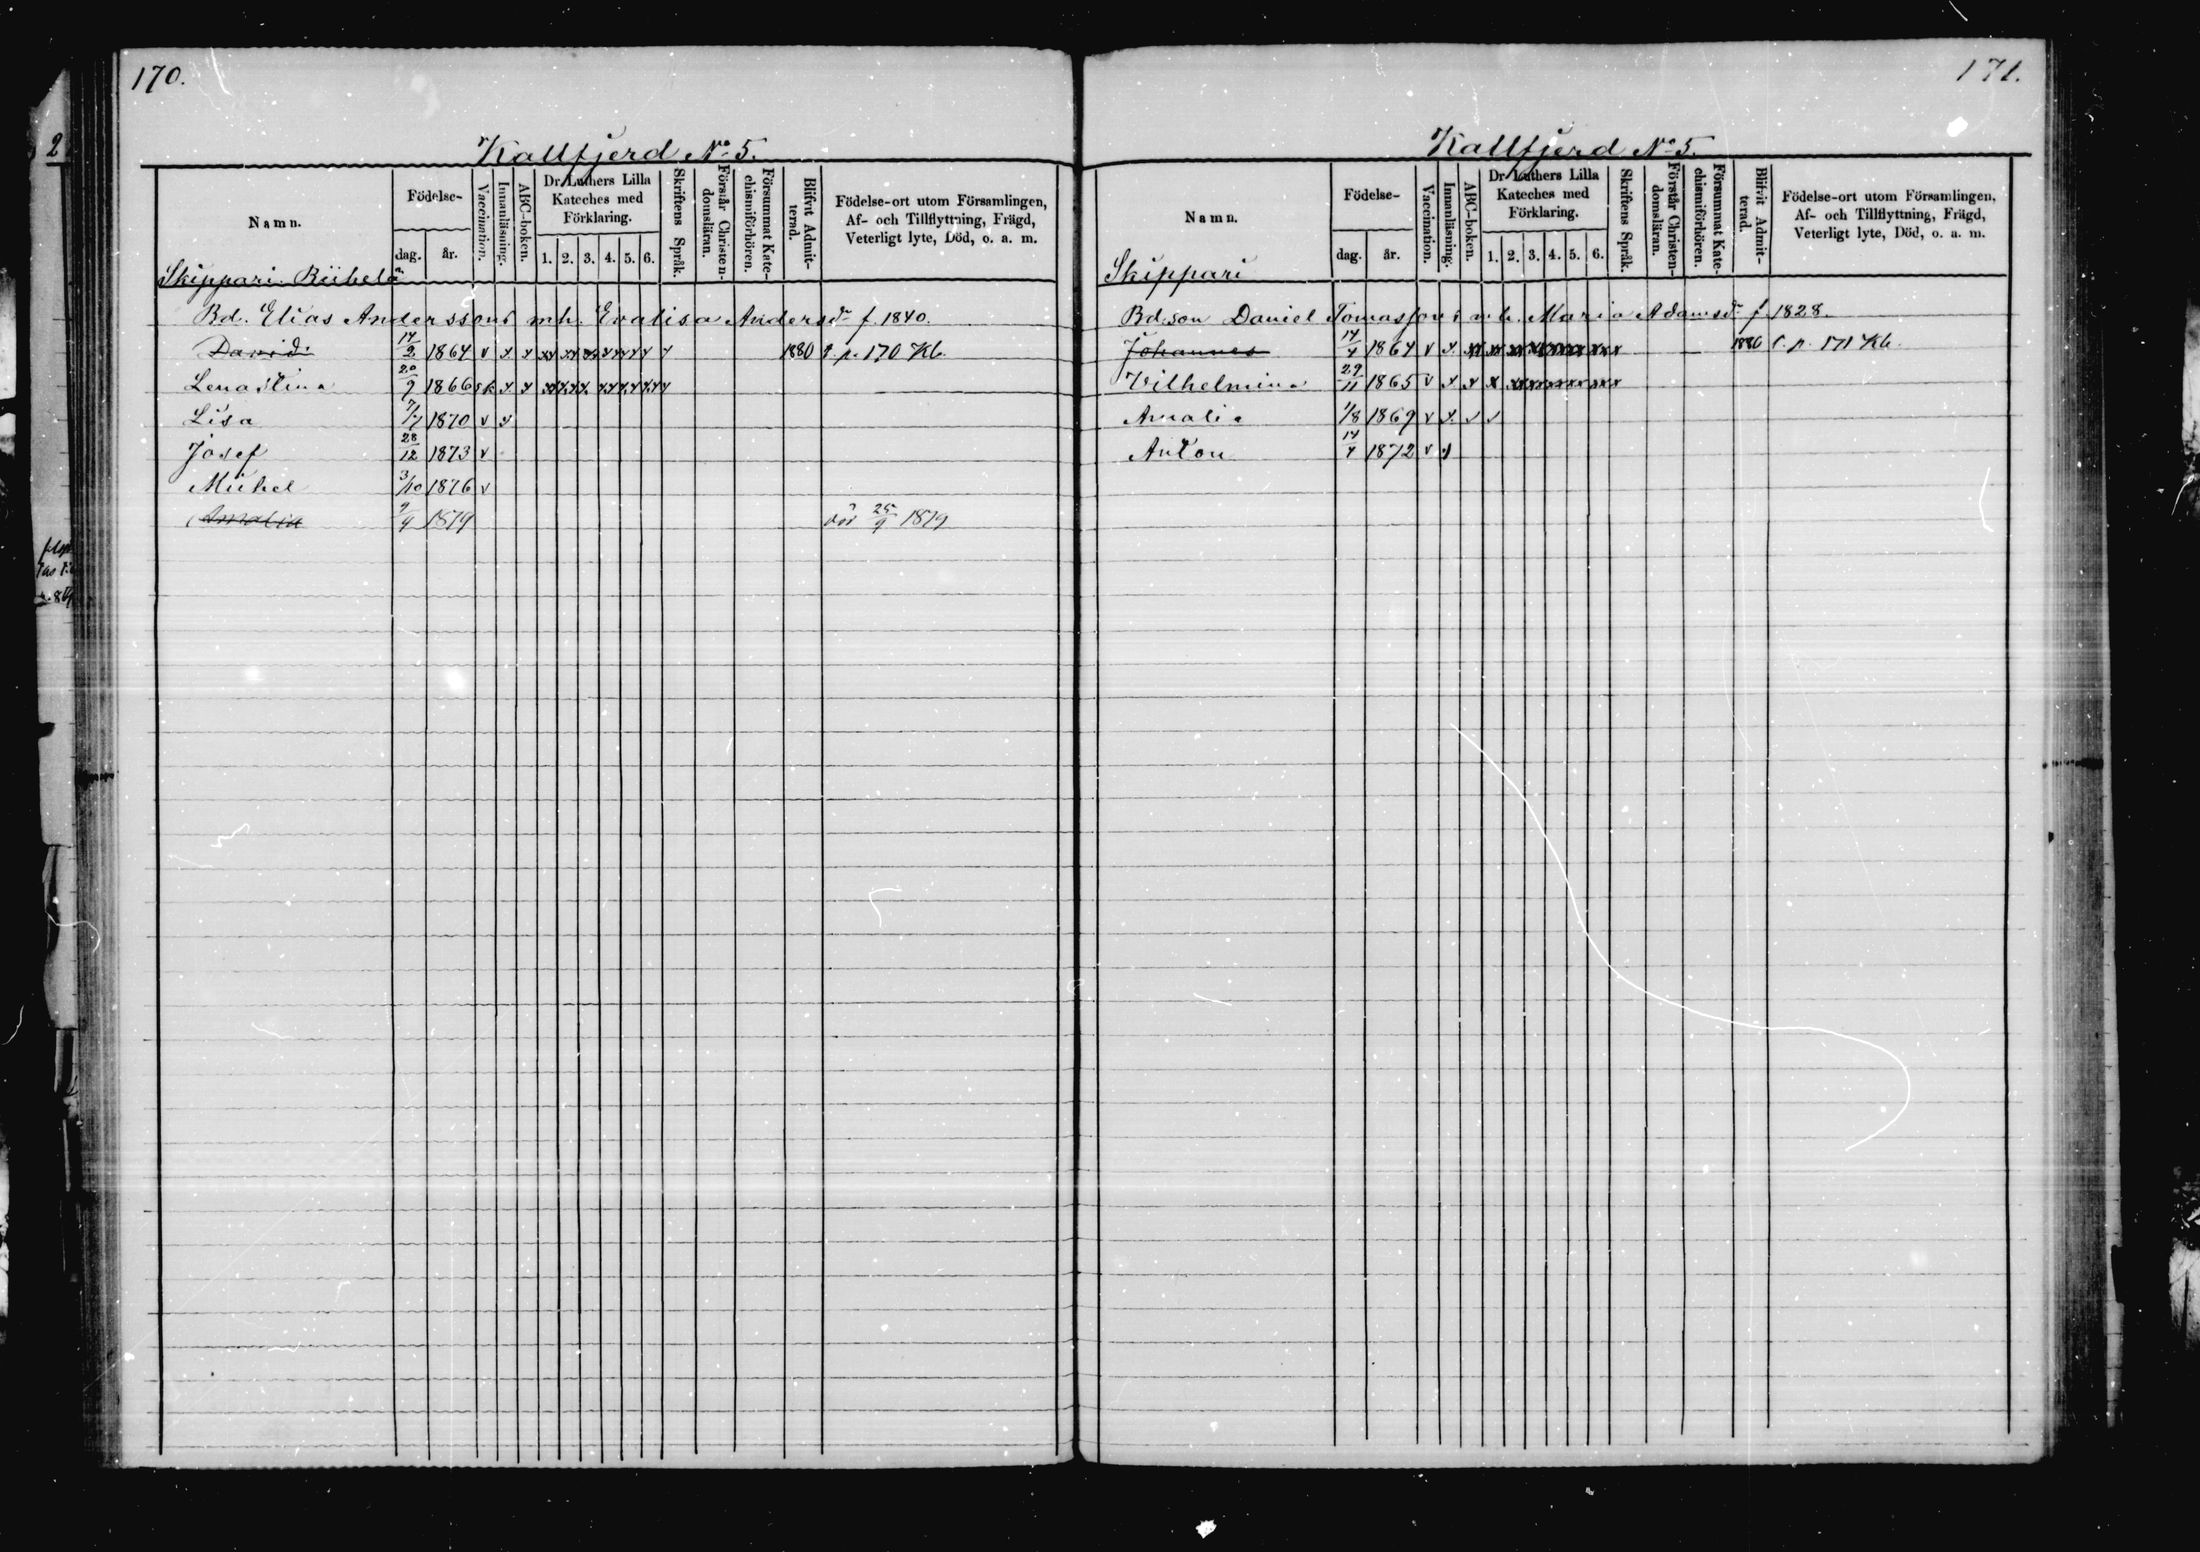 170.
Kallfjerd No 5.
Namn.
Födelse-
dag.
år.
Vaccination.
Innanläsning.
ABC-boken.
Dr Luthers Lilla Kateches med Förklaring.
1. 2. 3. 4. 5. 6.
Skriftens Språk.
Förstår Christendomsläran.
Försummat Katechismiförhören.
Blifvit Admitterad.
Födelse-ort utom Församlingen, Af- och Tillflyttning, Frägd, Veterligt lyte, Död, o. a. m.
Skippari
Bd. Elias Anderssons m.h. Evalisa Andersdr f. 1840.
David 14/2 1864 v x x 1880 s. p. 170 Kb.
Lenastina 20/9 1866 x x
Lisa 7/7 1870 v x
Josef 28/12 1873 v
Mickel 3/10 1876 v
Amalia 9/9 1879 död 25/9 1879
171.
Kallfjerd No 5.
Namn.
Födelse-
dag.
år.
Vaccination.
Innanläsning.
ABC-boken.
Dr Luthers Lilla Kateches med Förklaring.
1. 2. 3. 4. 5. 6.
Skriftens Språk.
Förstår Christendomsläran.
Försummat Katechismiförhören.
Blifvit Admitterad.
Födelse-ort utom Församlingen, Af- och Tillflyttning, Frägd, Veterligt lyte, Död, o. a. m.
Skippari
Bd.son Daniel Tomassons m.h. Maria Adamsdr f. 1828.
Johannes 14/4 1864 v x 1880 s. p. 171 Kb.
Vilhelmina 29/11 1865 v x x x
Amalia 1/8 1869 v x
Anton 14/4 1872 v